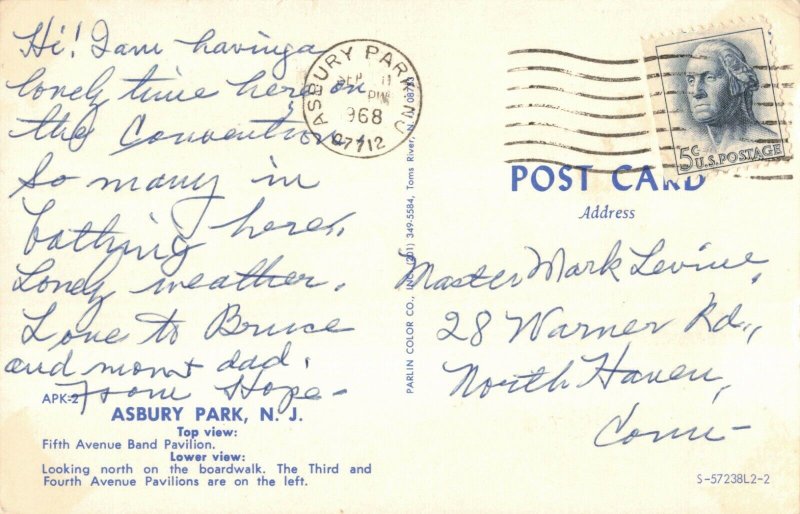 Hi! I am having a
lovely time here on
the Convention.
So many in
bathing here.
Lovely weather.
Love to Bruce
and mom & dad.
From Hope-
APK-2
ASBURY PARK, N. J.
Top view:
Fifth Avenue Band Pavilion.
Lower view:
Looking north on the boardwalk. The Third and
Fourth Avenue Pavilions are on the left.
ASBURY PARK NJ
SEP 11
PM
1968
07712
PARLIN COLOR CO., INC. (201) 349-5584, Toms River, N. J. 08753
5c U.S. POSTAGE
POST CARD
Address
Master Mark Levine,
28 Warner Rd.,
North Haven,
Conn-
S-57238L2-2